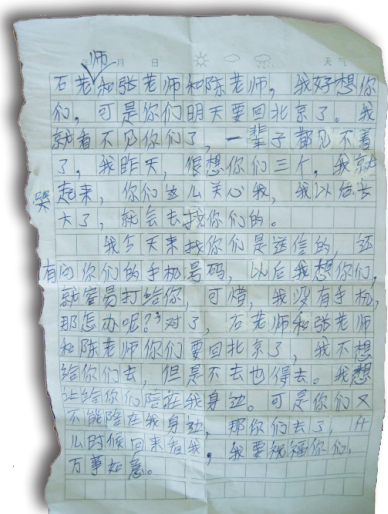 师
月 日 天气
石老和张老师和陈老师，我好想你
们，可是你们明天要回北京了。我
就看不见你们了，一辈子都见不着
了，我昨天，很想你们三个，我就
哭起来，你们这么关心我，我以后长
大了，就会去找你们的。
我今天来找你们是送信的，还
有问你们的手机号码，以后我想你们，
就容易打给你，可惜，我没有手机，
那怎办呢？对了，石老师和张老师
和陈老师你们要回北京了，我不想
给你们去，但是不去也得去。我想
让给你们陪在我身边。可是你们又
不能陪在我身边，那你们去了，什
么时候回来看我，我要祝福你们，
万事如意。